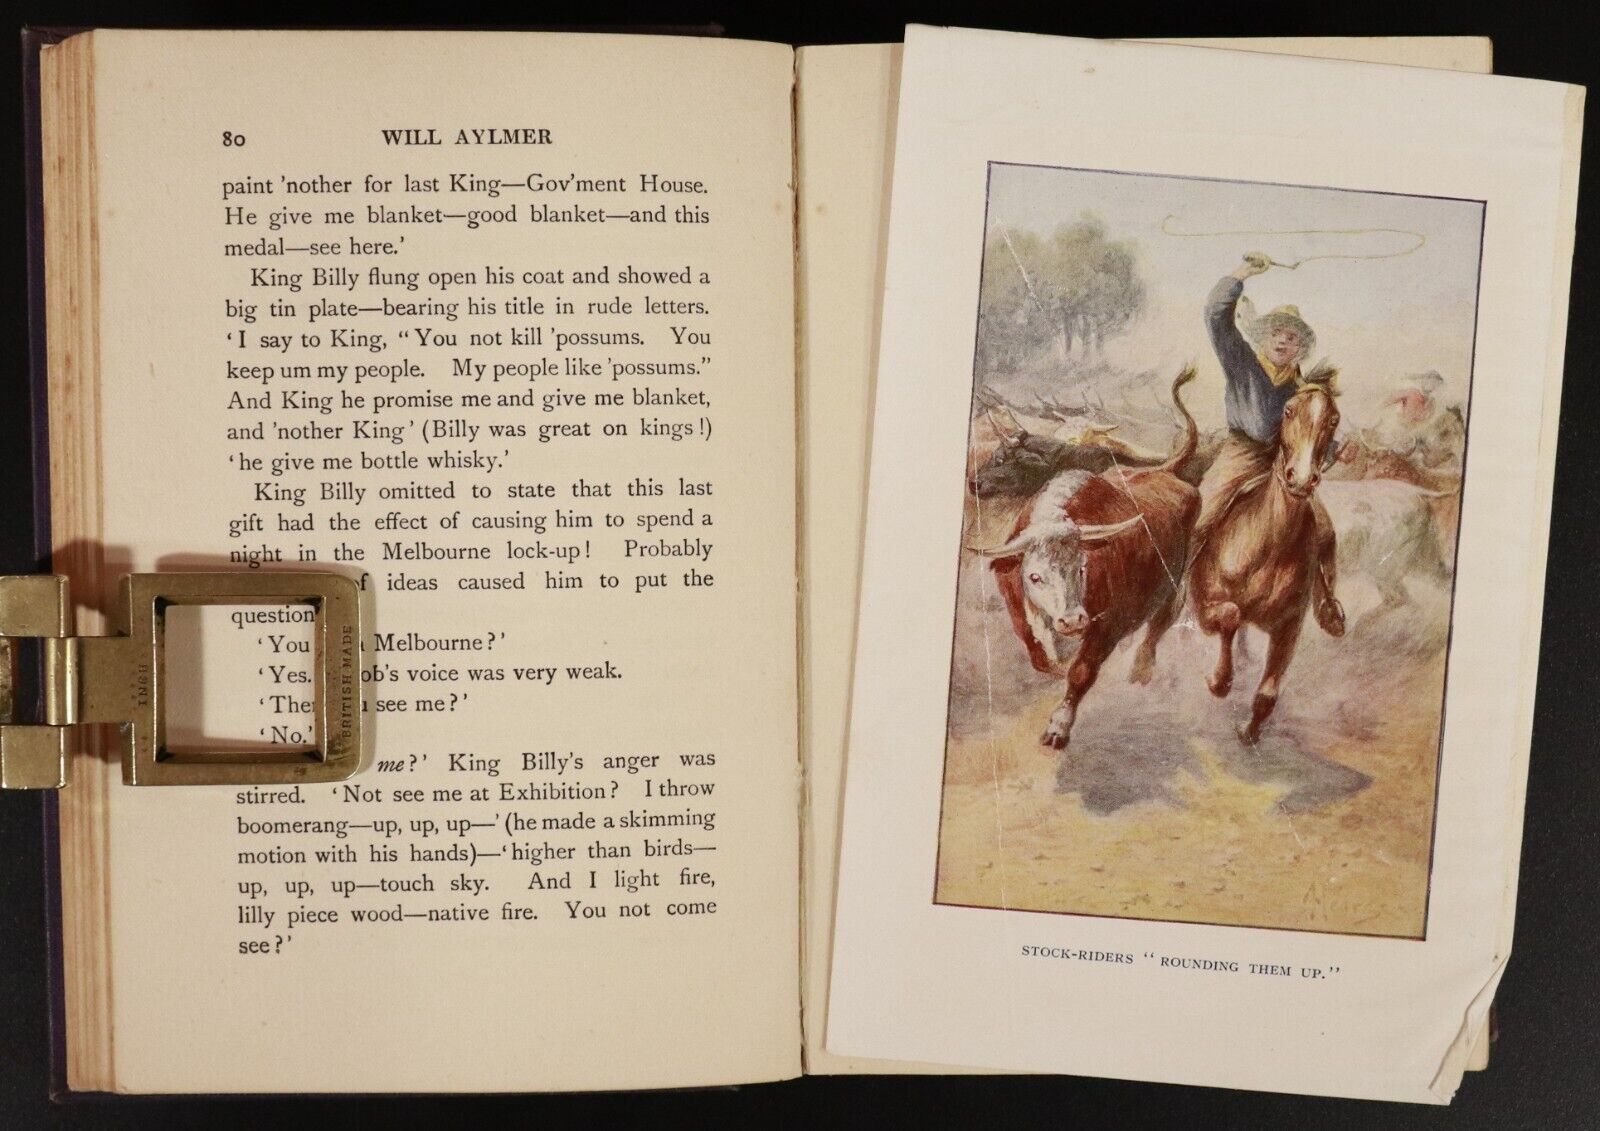 80 WILL AYLMER
paint 'nother for last King—Gov'ment House.
He give me blanket—good blanket—and this
medal—see here.'
King Billy flung open his coat and showed a
big tin plate—bearing his title in rude letters.
'I say to King, "You not kill 'possums. You
keep um my people. My people like 'possums."
And King he promise me and give me blanket,
and 'nother King' (Billy was great on kings!)
'he give me bottle whisky.'
King Billy omitted to state that this last
gift had the effect of causing him to spend a
night in the Melbourne lock-up! Probably
ideas caused him to put the
question
'You Melbourne?'
'Yes. voice was very weak.
see me?'
'No.'
me?' King Billy's anger was
stirred. 'Not see me at Exhibition? I throw
boomerang—up, up, up—' (he made a skimming
motion with his hands)—'higher than birds—
up, up, up—touch sky. And I light fire,
lilly piece wood—native fire. You not come
see?'
BRITISH MADE
STOCK-RIDERS "ROUNDING THEM UP."